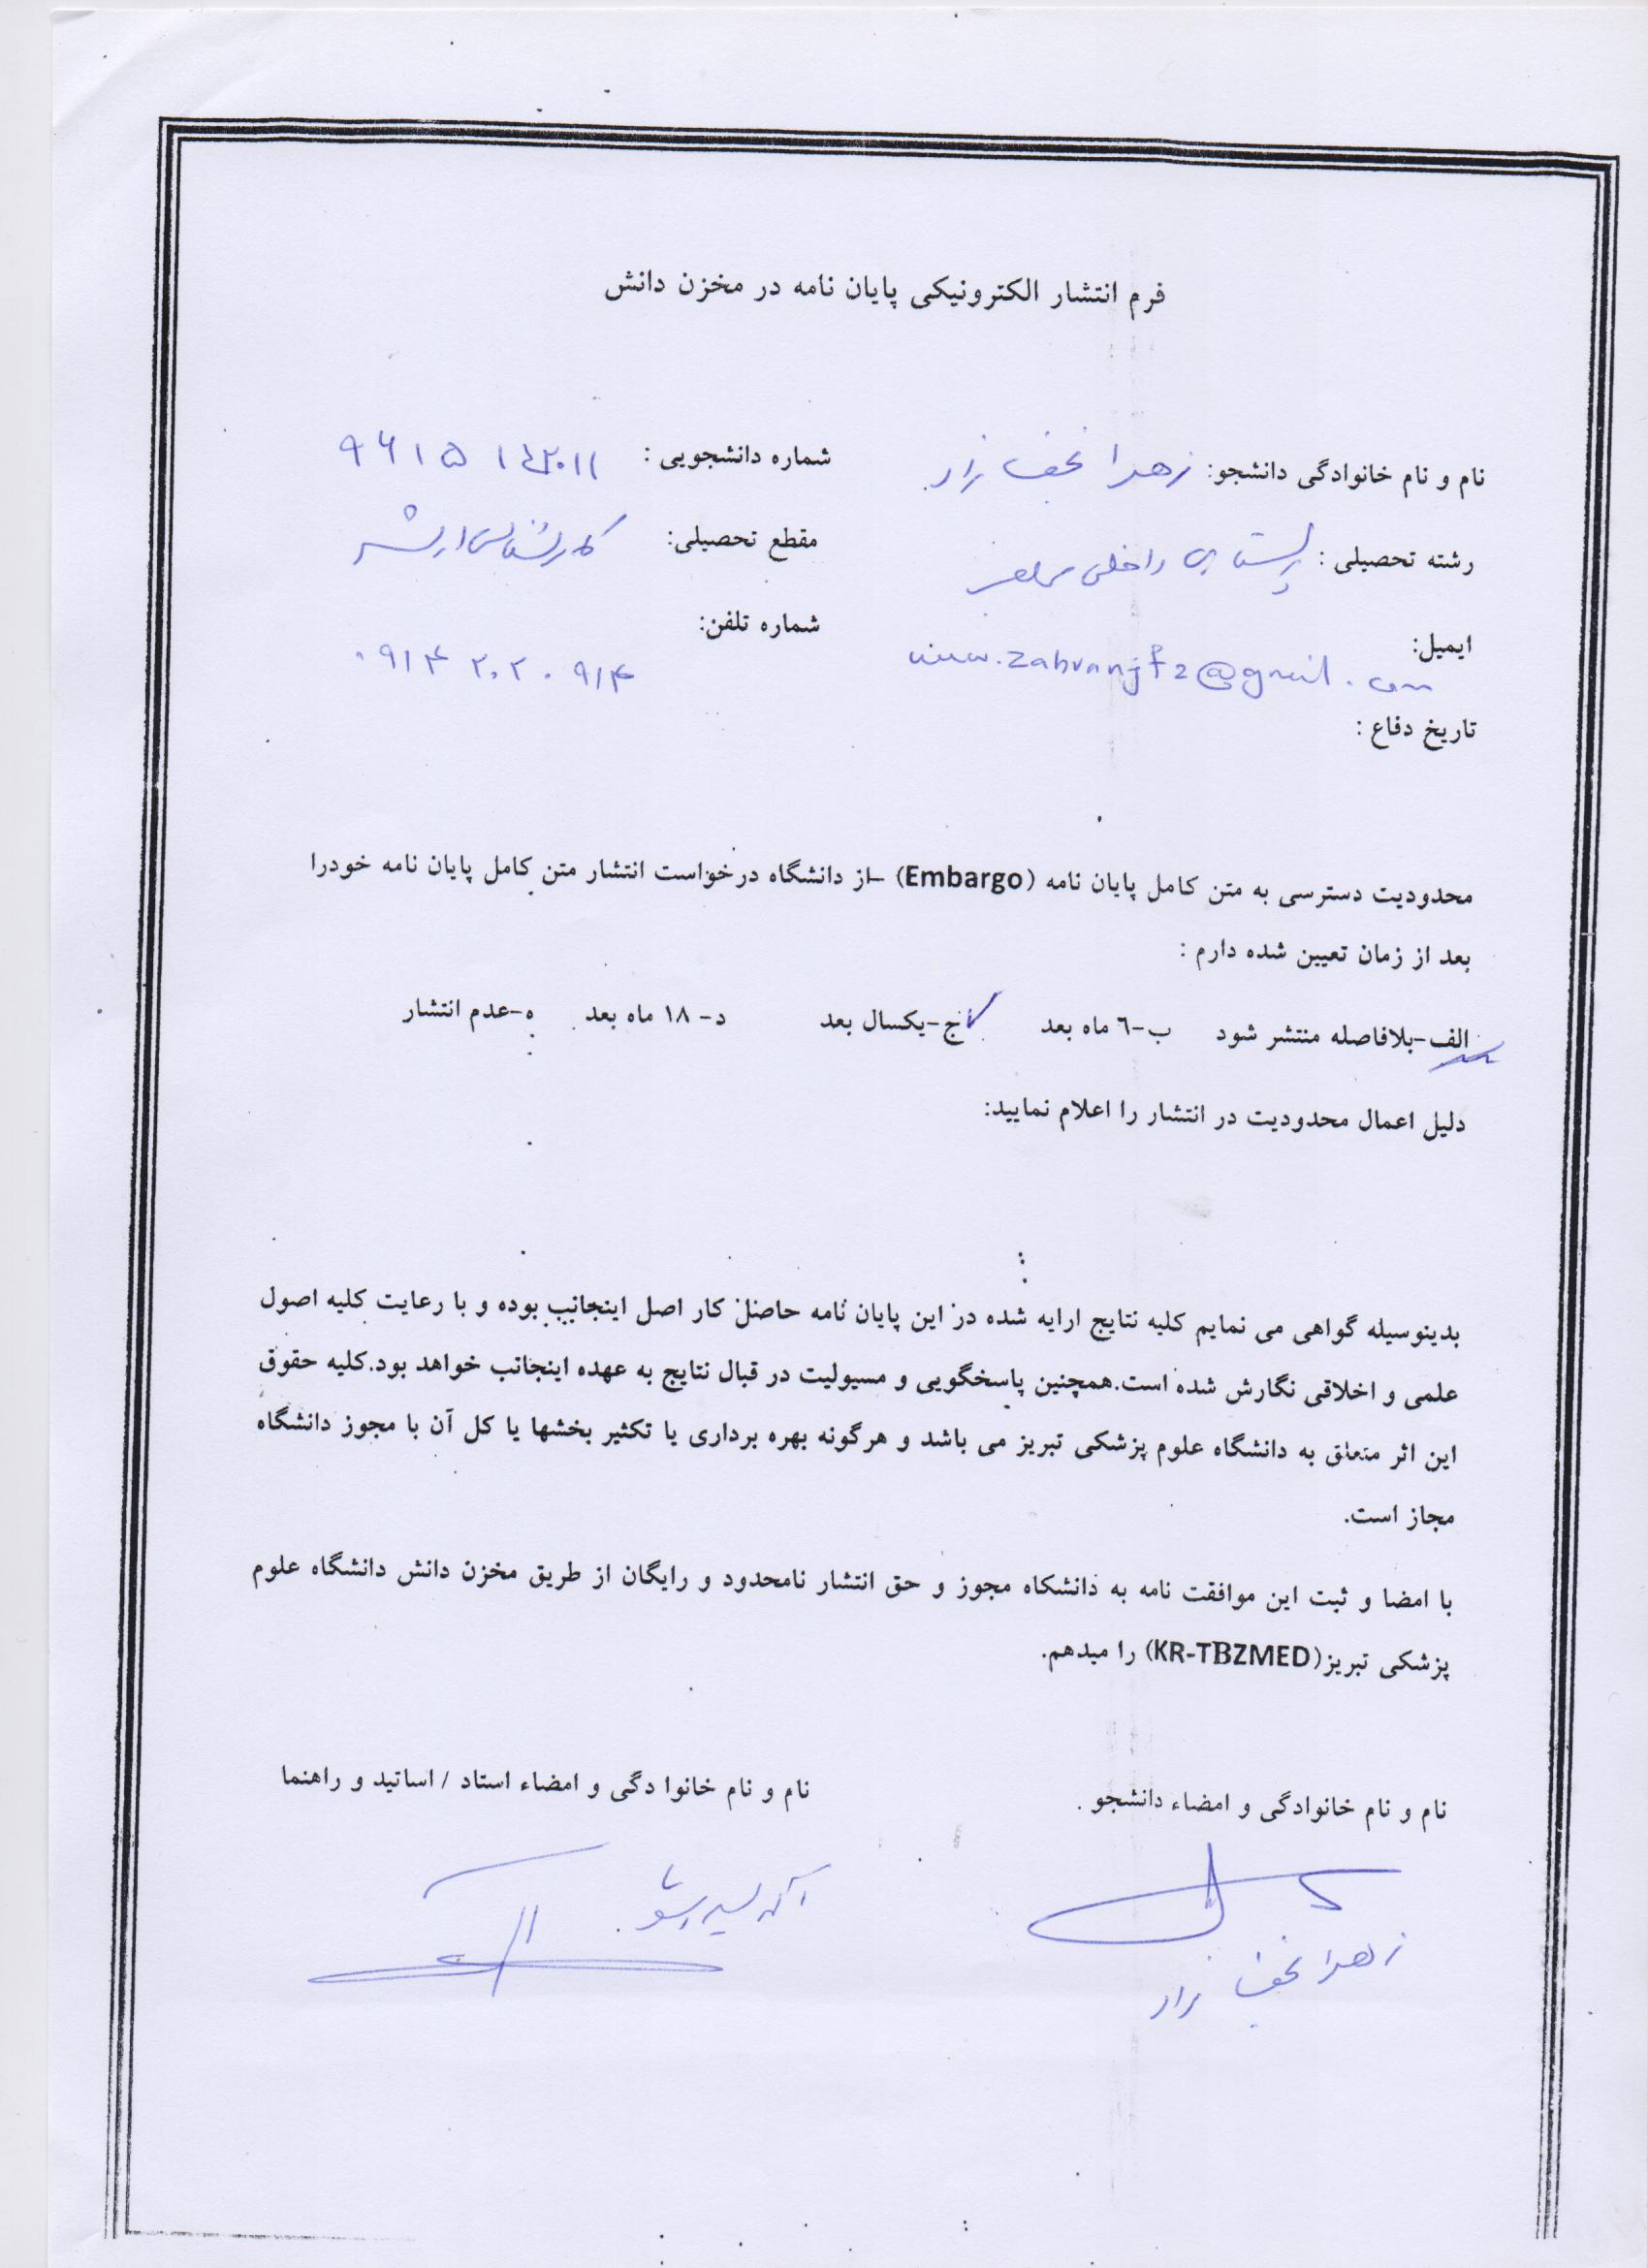 فرم انتشار الکترونیکی پایان نامه در مخزن دانش
نام و نام خانوادگی دانشجو: زهرا نجف زاد شماره دانشجویی :
رشته تحصیلی : پرستاری داخلی جراحی مقطع تحصیلی: کارشناسی ارشد
ایمیل: شماره تلفن:
www.zahranjf2@gmail.com ۰۹۱۴ ۲۰۲۰ ۹۱۴
تاریخ دفاع :
محدودیت دسترسی به متن کامل پایان نامه (Embargo) –از دانشگاه درخواست انتشار متن کامل پایان نامه خودرا
بعد از زمان تعیین شده دارم :
الف-بلافاصله منتشر شود ب-٦ ماه بعد ج-یکسال بعد د- ۱۸ ماه بعد ه-عدم انتشار
دلیل اعمال محدودیت در انتشار را اعلام نمایید:
بدینوسیله گواهی می نمایم کلیه نتایج ارایه شده در این پایان نامه حاصل کار اصل اینجانب بوده و با رعایت کلیه اصول
علمی و اخلاقی نگارش شده است.همچنین پاسخگویی و مسیولیت در قبال نتایج به عهده اینجانب خواهد بود.کلیه حقوق
این اثر متعلق به دانشگاه علوم پزشکی تبریز می باشد و هرگونه بهره برداری یا تکثیر بخشها یا کل آن با مجوز دانشگاه
مجاز است.
با امضا و ثبت این موافقت نامه به دانشکاه مجوز و حق انتشار نامحدود و رایگان از طریق مخزن دانش دانشگاه علوم
پزشکی تبریز(KR-TBZMED) را میدهم.
نام و نام خانوادگی و امضاء دانشجو . نام و نام خانوا دگی و امضاء استاد / اساتید و راهنما
زهرا نجف زاد